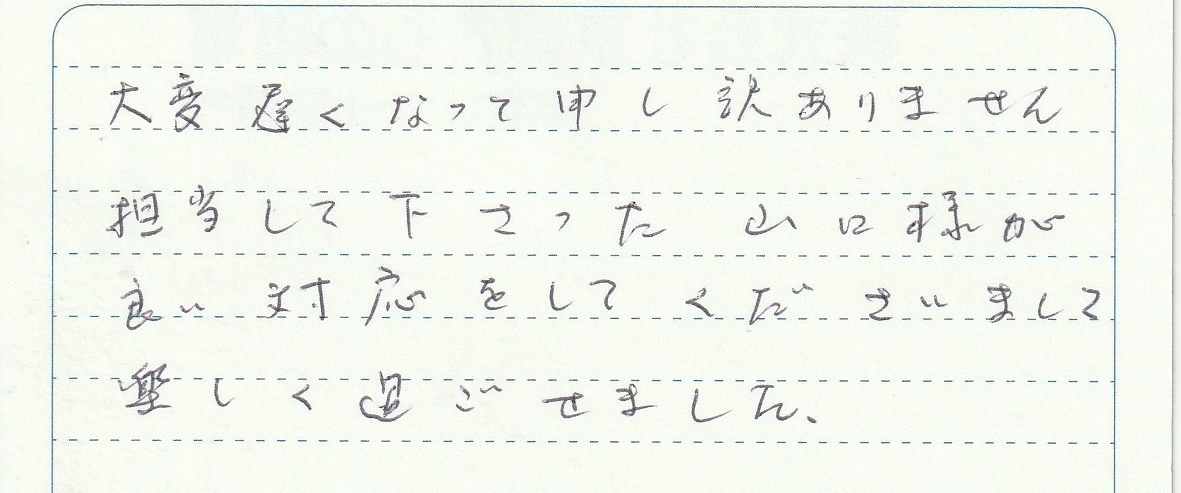 大変遅くなって申し訳ありません
担当して下さった山口様が
良い対応をしてくださいまして
楽しく過ごせました、